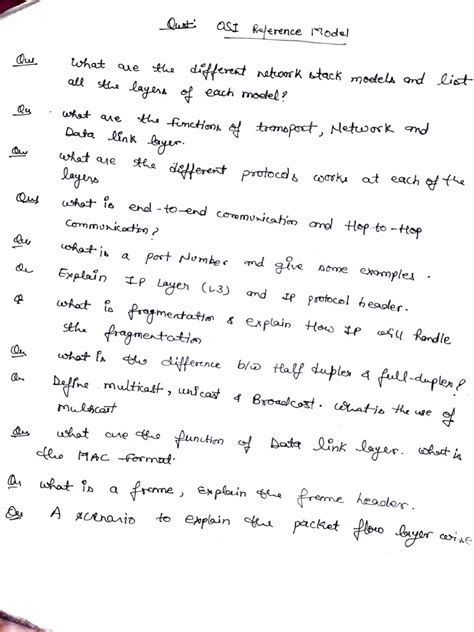 Quest: OSI Reference Model
Que what are the different network stack models and list
all the layers of each model?
Qu what are the functions of transport, Network and
Data link layer.
Qu what are the different protocols works at each of the
layers
Ques what is end-to-end communication and Hop-to-Hop
communication?
Qu what is a port Number and give some examples.
Qu Explain IP Layer (L3) and IP protocol header.
Q what is fragmentation & explain How IP will handle
the fragmentation
Qu what is the difference b/w Half duplex & full-duplex?
Qu Define multicast, unicast & Broadcast. what is the use of
Multicast
Qus what are the function of Data link layer. what is
the MAC-format.
Qu what is a frame, explain the frame header.
Que A scenario to explain the packet flow layer wise